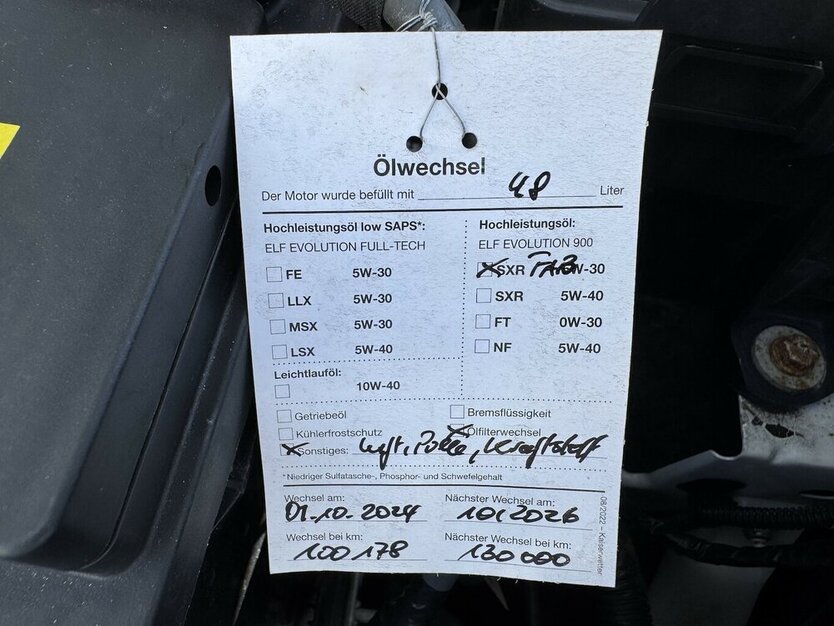 Ölwechsel
Der Motor wurde befüllt mit 4,8 Liter
Hochleistungsöl low SAPS*:
ELF EVOLUTION FULL-TECH
FE 5W-30
LLX 5W-30
MSX 5W-30
LSX 5W-40
Leichtlauföl:
10W-40
Hochleistungsöl:
ELF EVOLUTION 900
SXR W-30
SXR 5W-40
FT 0W-30
NF 5W-40
Getriebeöl
Bremsflüssigkeit
Kühlerfrostschutz
Ölfilterwechsel
Sonstiges: Luft, Polle, Kraftstoff
*Niedriger Sulfatasche-, Phosphor- und Schwefelgehalt
Wechsel am:
01.10.2024
Nächster Wechsel am:
10/2026
Wechsel bei km:
100 178
Nächster Wechsel bei km:
130 000
08/2022 – Kaiserwetter